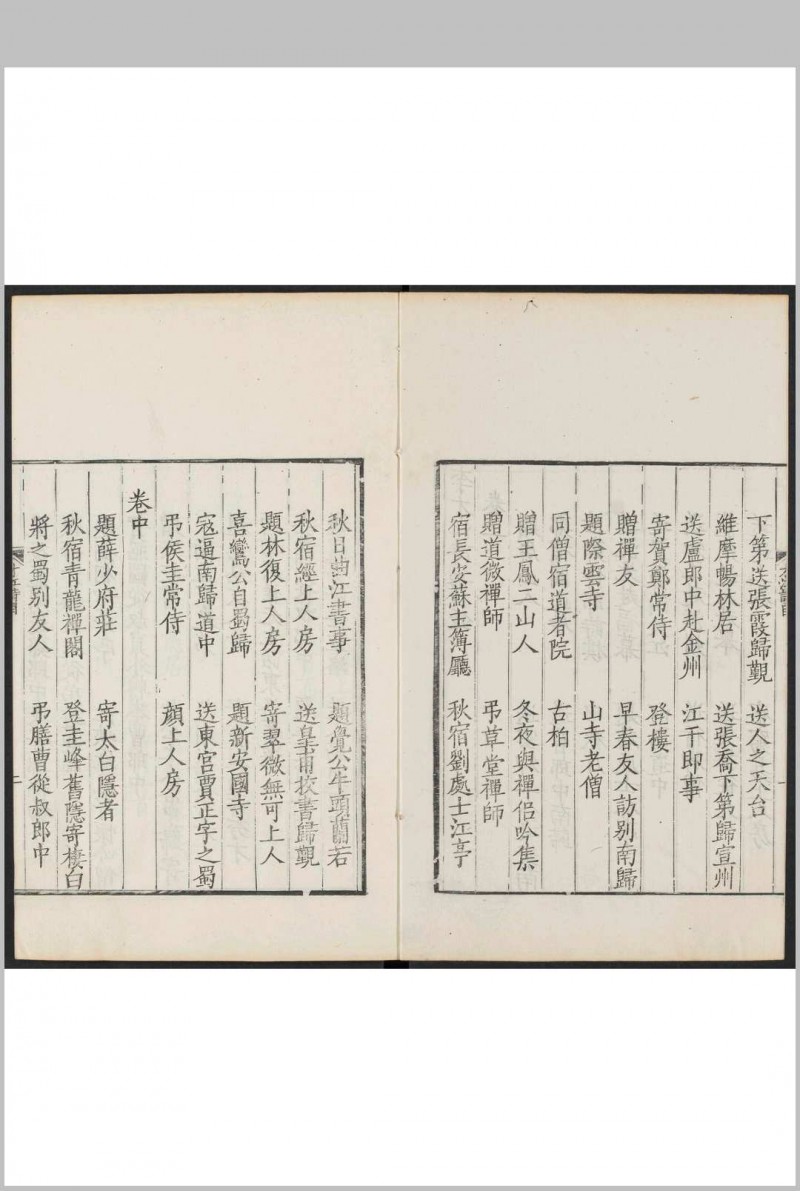 下第送張霞歸覲　送人之天台
維摩暢林居　送張喬下第歸宣州
送盧郎中赴金州　江干即事
寄賀鄭常侍　登樓
贈禪友　早春友人訪别南歸
題際雲寺　山寺老僧
同僧宿道者院　古柏
贈王鳳二山人　冬夜與禪侣吟集
贈道微禪師　弔草堂禪師
宿長安蘇主簿廳　秋宿劉處士江亭
秋日曲江書事　題覺公牛頭蘭若
秋宿經上人房　送皇甫校書歸覲
題林復上人房　寄翠微無可上人
喜鸞公自蜀歸　題新安國寺
寇逼南歸道中　送東宫賈正字之蜀
弔侯圭常侍　顔上人房
卷中
題薛少府莊　寄太白隱者
秋宿青龍禪閣　登圭峰舊隱寄棲白
將之蜀别友人　弔膳曹從叔郎中
二